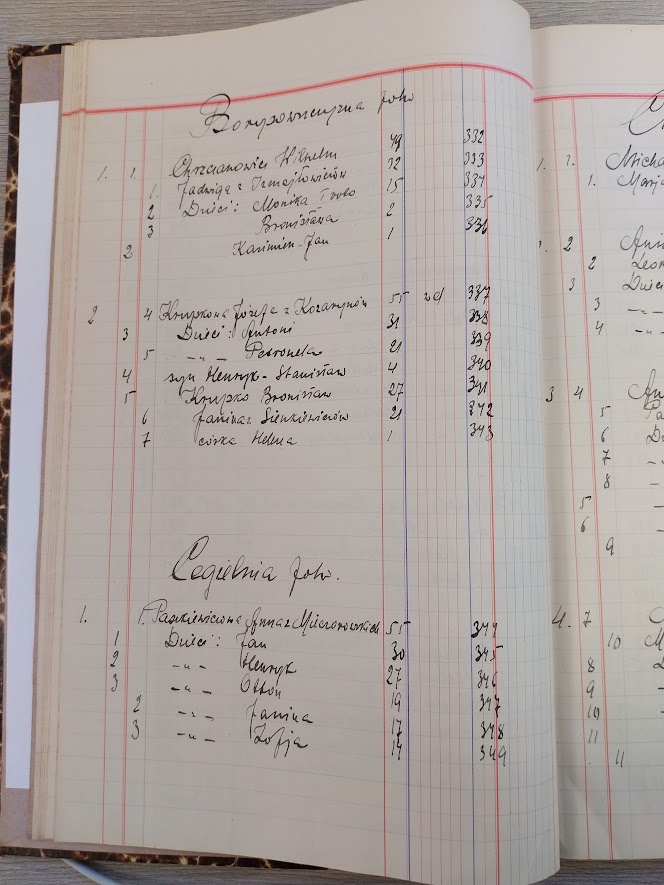 folw.
1. 1. Chrzcianowicz Wilhelm 49 332
1. Jadwiga z Izmajłowiczów 32 333
2 Dzieci: Monika 15 334
3 Bronisława 2 335
2 Kazimierz-Jan 1 336
2 4 Krupkowa Józefa z 55 337
3 Dzieci: Antoni 31 338
5 -"- Petronela 21 339
4 syn Henryk-Stanisław 4 340
5 Krupko Bronisław 27 341
6 Janina z Sienkiewiczów 21 342
7 córka Helena 1 343
Cegielnia folw.
1. 1. Paszkiewiczowa Anna z 55 344
1 Dzieci: Jan 30 345
2 -"- Henryk 27 346
3 -"- Otton 19 347
2 -"- Janina 17 348
3 -"- Zofja 14 349
1. 1. Micha
1. Marj
2
2 Leon
3 Dzieci
3 -"-
4 -"-
3 4
5
6
7 -
8 -
5
6
9
4. 7
10
8
9
10
11
11